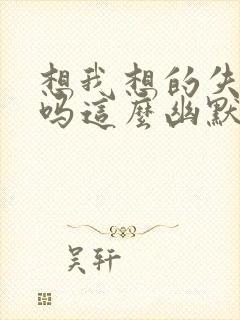 想我想的失
吗这麼幽默
吴轩